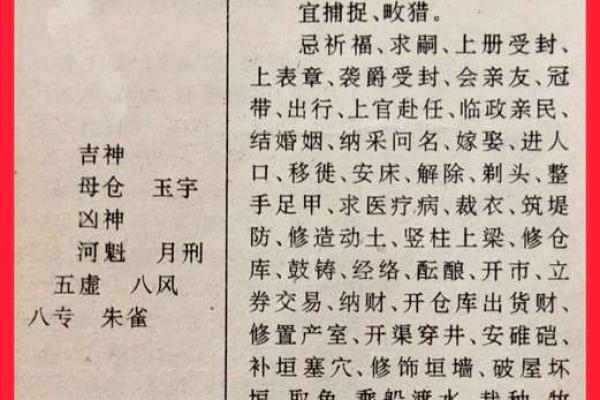 吉神
母仓 玉宇
凶神
河魁 月刑
五虚 八风
八专 朱雀
宜捕捉、畋猎。
忌祈福、求嗣、上册受封、
上表章、袭爵受封、会亲友、冠
带、出行、上官赴任、临政亲民、
结婚姻、纳采问名、嫁娶、进人
口、移徙、安床、解除、剃头、整
手足甲、求医疗病、裁衣、筑堤
防、修造动土、竖柱上梁、修仓
库、鼓铸、经络、酝酿、开市、立
券交易、纳财、开仓库出货财、
修置产室、开渠穿井、安碓硙、
补垣塞穴、修饰垣墙、破屋坏
垣、取鱼、乘船渡水、栽种、牧